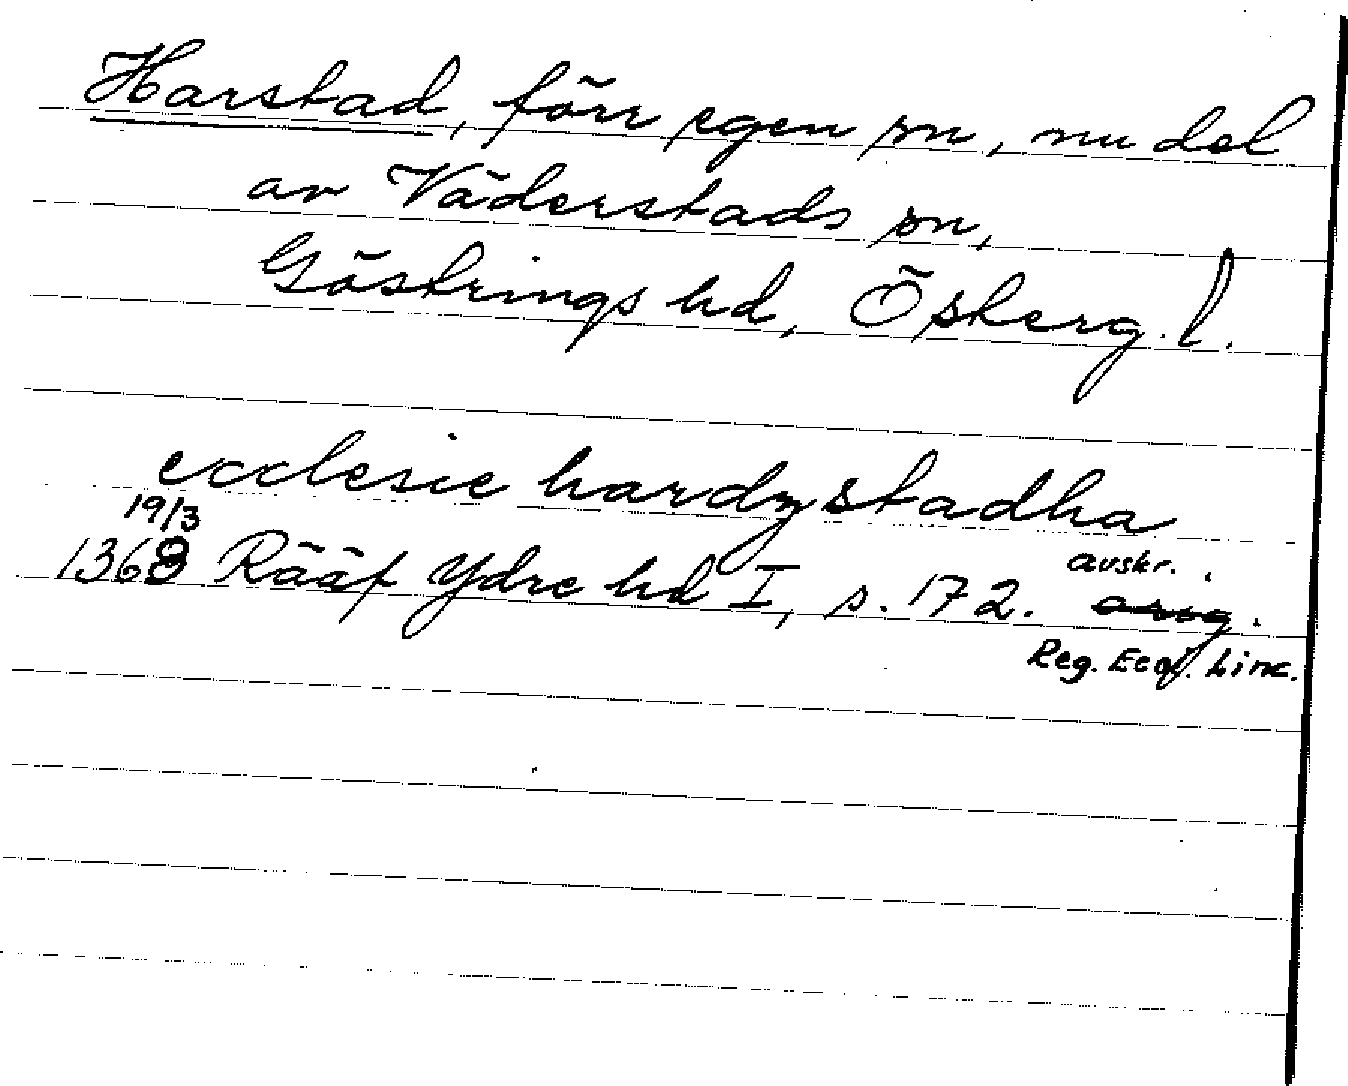 Harstad, förr egen sn, nu del
av Väderstads sn,
Göstrings hd, Österg. l.
ecclesie hardzstadha
19/3
1368 Rääf Ydre hd I, s. 172. avskr.
Reg. Eccl. Linc.